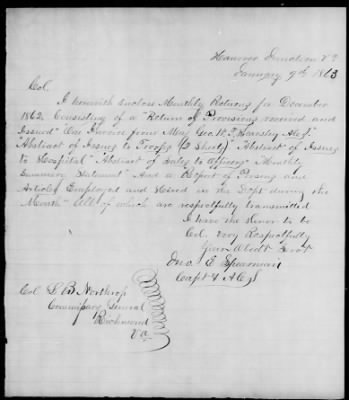 Hanover Junction Va
January 9th 1863
Col.
I herewith enclose Monthly Returns for December
1862. Consisting of a "Return of Provisions received and
Issued" One Invoice from Maj Geo. W. T.
"Abstract of Issues to Troops (2 Sheets)" "Abstract of Issues
to Hospital" "Abstract of Sales to Officers" "Monthly
Summary Statement" And a Report of Persons and
Articles Employed and Hired in the Dept during the
Month" All of which are respectfully transmitted
I have the Honor to be
Col. Very Respectfully
Your Obedt Servt
Jno. E. Spearman
Capt & A.C.S
Col. L B Northrop
Commissary General
Richmond
Va